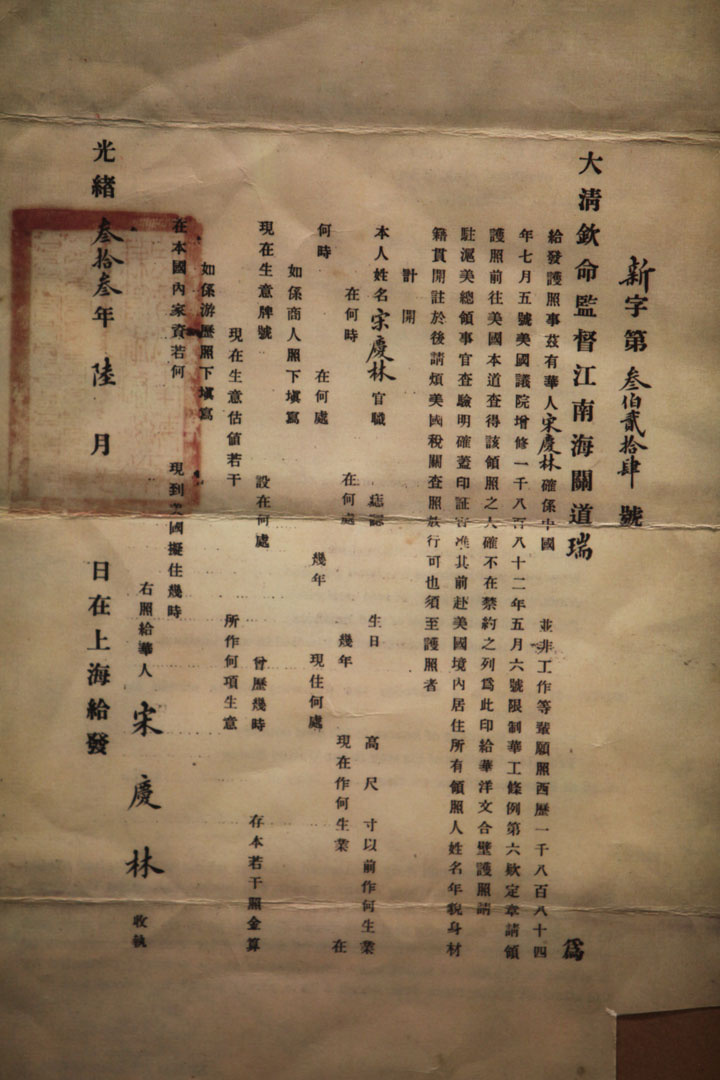 新字第叁佰貳拾肆號
大清欽命監督江南海關道瑞 爲
給發護照事茲有華人宋慶林確係中國 並非工作等輩願照西歷一千八百八十四
年七月五號美國議院增修一千八百八十二年五月六號限制華工條例第六欵定章請領
護照前往美國本道查得該領照之人確不在禁約之列爲此印給華洋文合璧護照請
駐滬美總領事官查驗明確蓋印証官准其前赴美國境內居住所有領照人姓名年貌身材
籍貫開註於後請煩美國稅關查照放行可也須至護照者
計開
本人姓名宋慶林官職 痣認 生日 高 尺 寸以前作何生業
在何時 在何處 幾年 現在作何生業 在
何時 在何處 幾年 現住何處
如係商人照下塡寫
現在生意牌號 設在何處 曾歷幾時 存本若干照金算
現在生意估値若干 所作何項生意
如係游歷照下塡寫
在本國內家資若何 現到美國擬住幾時
右照給華人 宋慶林 收執
光緒叁拾叁年陸月 日在上海給發